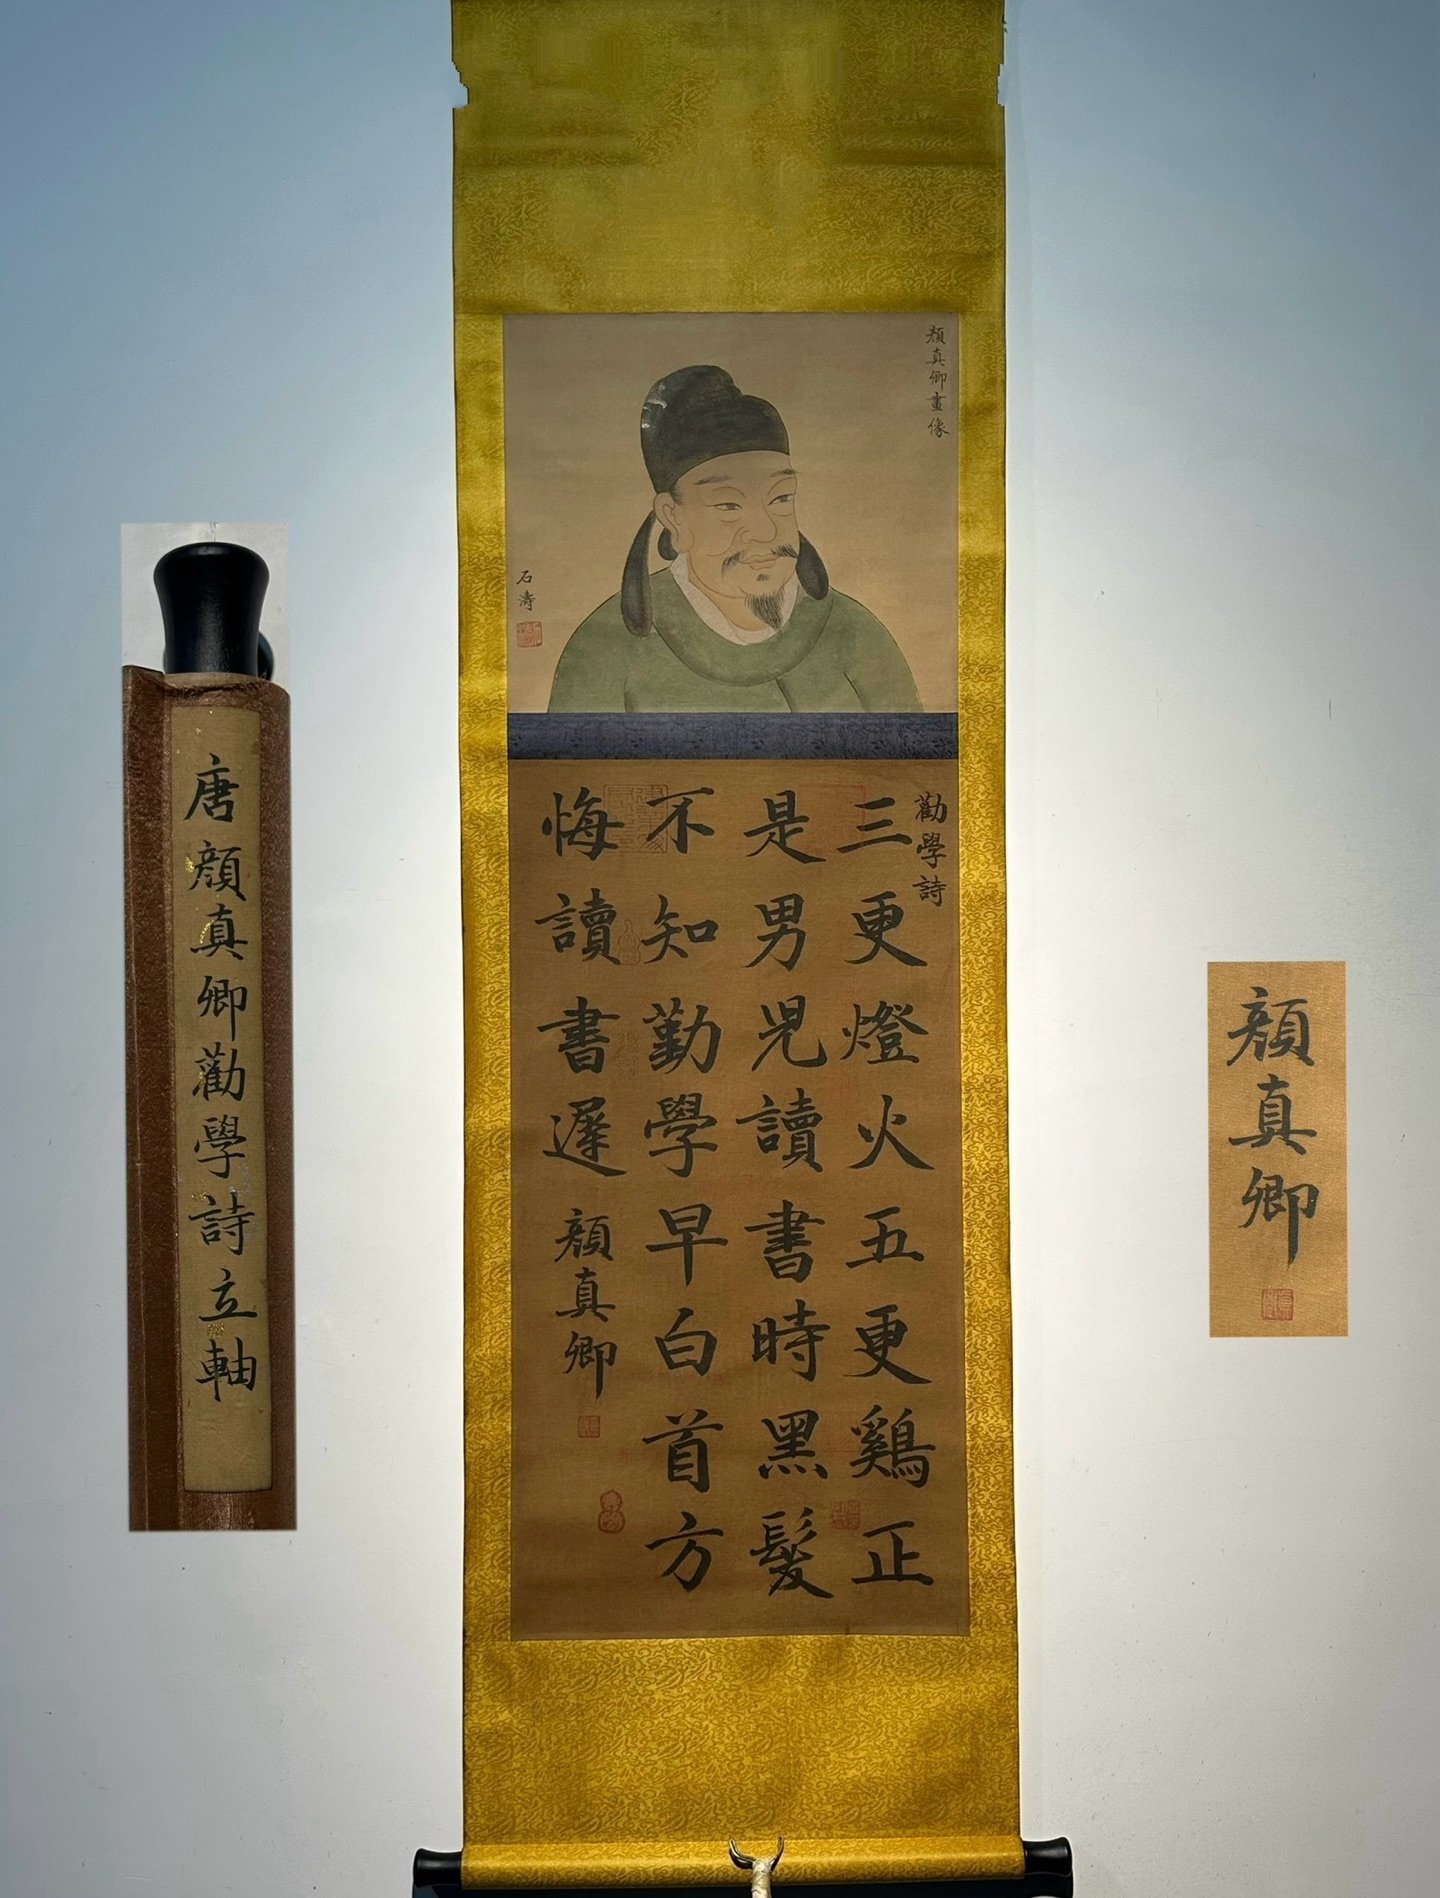 顏真卿畫像
石濤
勸學詩
三更燈火五更鷄正
是男児讀書時黑髮
不知勤學早白首方
悔讀書遲
顏真卿
唐顏真卿勸學詩立軸
顏真卿